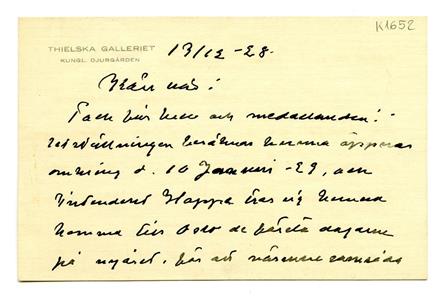 K1652
THIELSKA GALLERIET
KUNGL. DJURGÅRDEN
13/12 - 28.
Käre vän!
Tack för brev och meddelanden!
Utställningen beräknas kunna öppnas
omkring d. 10 Januari - 29, och
Intendent Hoppe tror sig kunna
komma till Oslo de första dagarne
på nyåret, för att närmare samråda